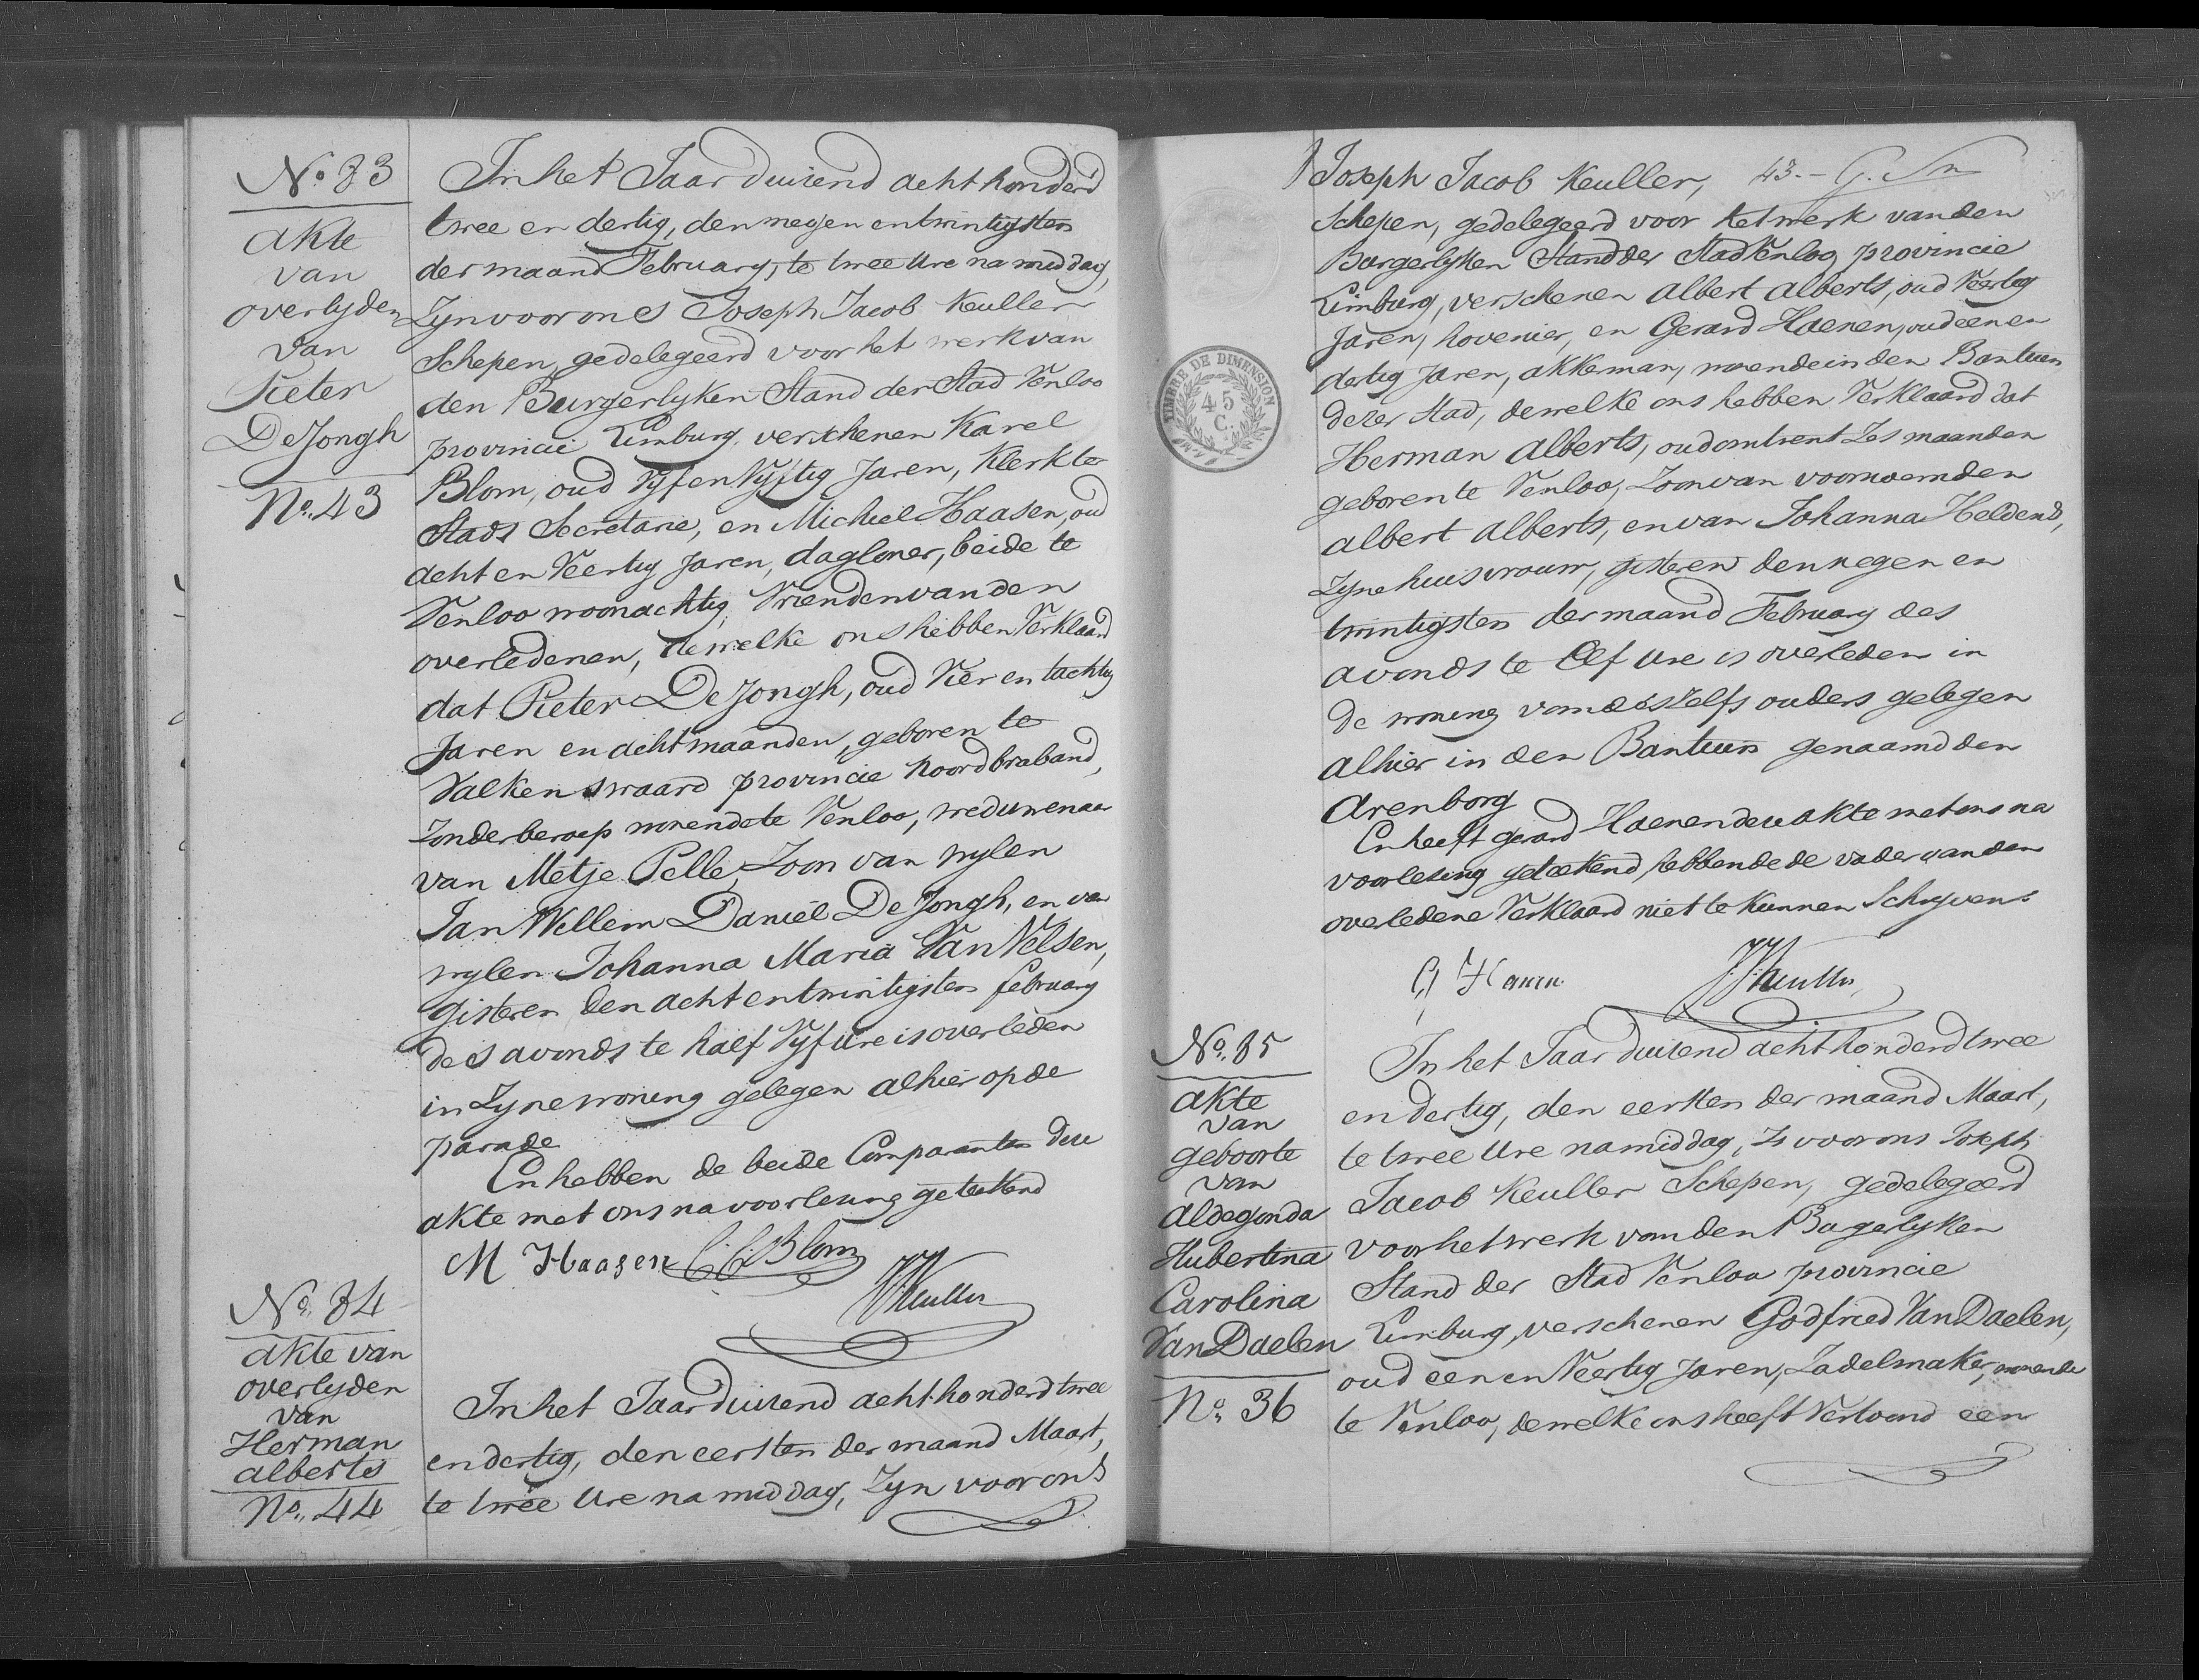 No. 83
akte
van
overlyden
van
Pieter
De Jongh
No. 43
In het Jaar duizend acht honderd
twee en dertig, den negen en twintigsten
der maand February, te twee Ure na middag,
Zyn voor ons Joseph Jacob Keuller
Schepen, gedelegeerd voor het werk van
den Burgerlyken Stand der Stad Venloo
provincie Limburg, verschenen Karel
Blom, oud Vyf en Vyftig Jaren, Klerk ter
Stads Secretarie, en Michiel Haasen, oud
acht en Veertig Jaren, dagloner, beide te
Venloo woonachtig, Vrienden van den
overledenen, dewelke ons hebben Verklaard
dat Pieter De Jongh, oud Vier en tachtig
Jaren en acht maanden, geboren te
Valkenswaard provincie Noordbraband,
Zonder beroep wonende te Venloo, weduwenaar
van Metje Pelle, Zoon van wylen
Jan Willem Daniël De Jongh, en van
wylen Johanna Maria Van Velsen,
gisteren den acht en twintigsten february
des avonds te half Vyf Ure is overleden
in Zyne woning gelegen alhier op de
parade
En hebben de beide Comparanten deze
akte met ons na voorlezing getekend
M Haasen C. C. Blom
JJKeuller
No. 84
akte van
overlyden
van
Herman
alberts
No. 44
In het Jaar duizend acht honderd twee
en dertig, den eersten der maand Maart,
te twee Ure na middag, Zyn voor ons
Joseph Jacob Keuller, 43.-
Schepen, gedelegeerd voor het werk van den
Burgerlyken Stand der Stad Venloo, provincie
Limburg, verschenen Albert Alberts, oud Veertig
Jaren, hovenier, en Gerard Haenen, oud een en
dertig Jaren, akkerman, wonende in den Bantuin
dezer Stad, dewelke ons hebben Verklaard dat
Herman Alberts, oud omtrent Zes maanden
geboren te Venloo, Zoon van voornoemden
albert Alberts, en van Johanna Heldens,
Zyne huisvrouw, gisteren den negen en
twintigsten der maand February des
avonds te Elf Ure is overleden in
de woning van deszelfs ouders gelegen
alhier in den Bantuin genaamd den
Arenborg
En heeft gerard Haenen deze akte met ons na
voorlezing getekend, hebbende de vader van den
overledene Verklaard niet te kunnen Schryven
G Hanen JJKeuller
TIMBRE DE DIMENSION
45
C.
No. 85
akte
van
geboorte
van
Aldegonda
Hubertina
Carolina
Van Daelen
No. 36
In het Jaar duizend acht honderd twee
en dertig, den eersten der maand Maart,
te twee Ure namiddag, Is voor ons Joseph
Jacob Keuller Schepen, gedelegeerd
voor het werk van den Burgerlyken
Stand der Stad Venloo provincie
Limburg, verschenen Godfried Van Daelen,
oud een en Veertig Jaren, Zadelmaker, wonende
te Venloo, dewelke ons heeft Vertoond een